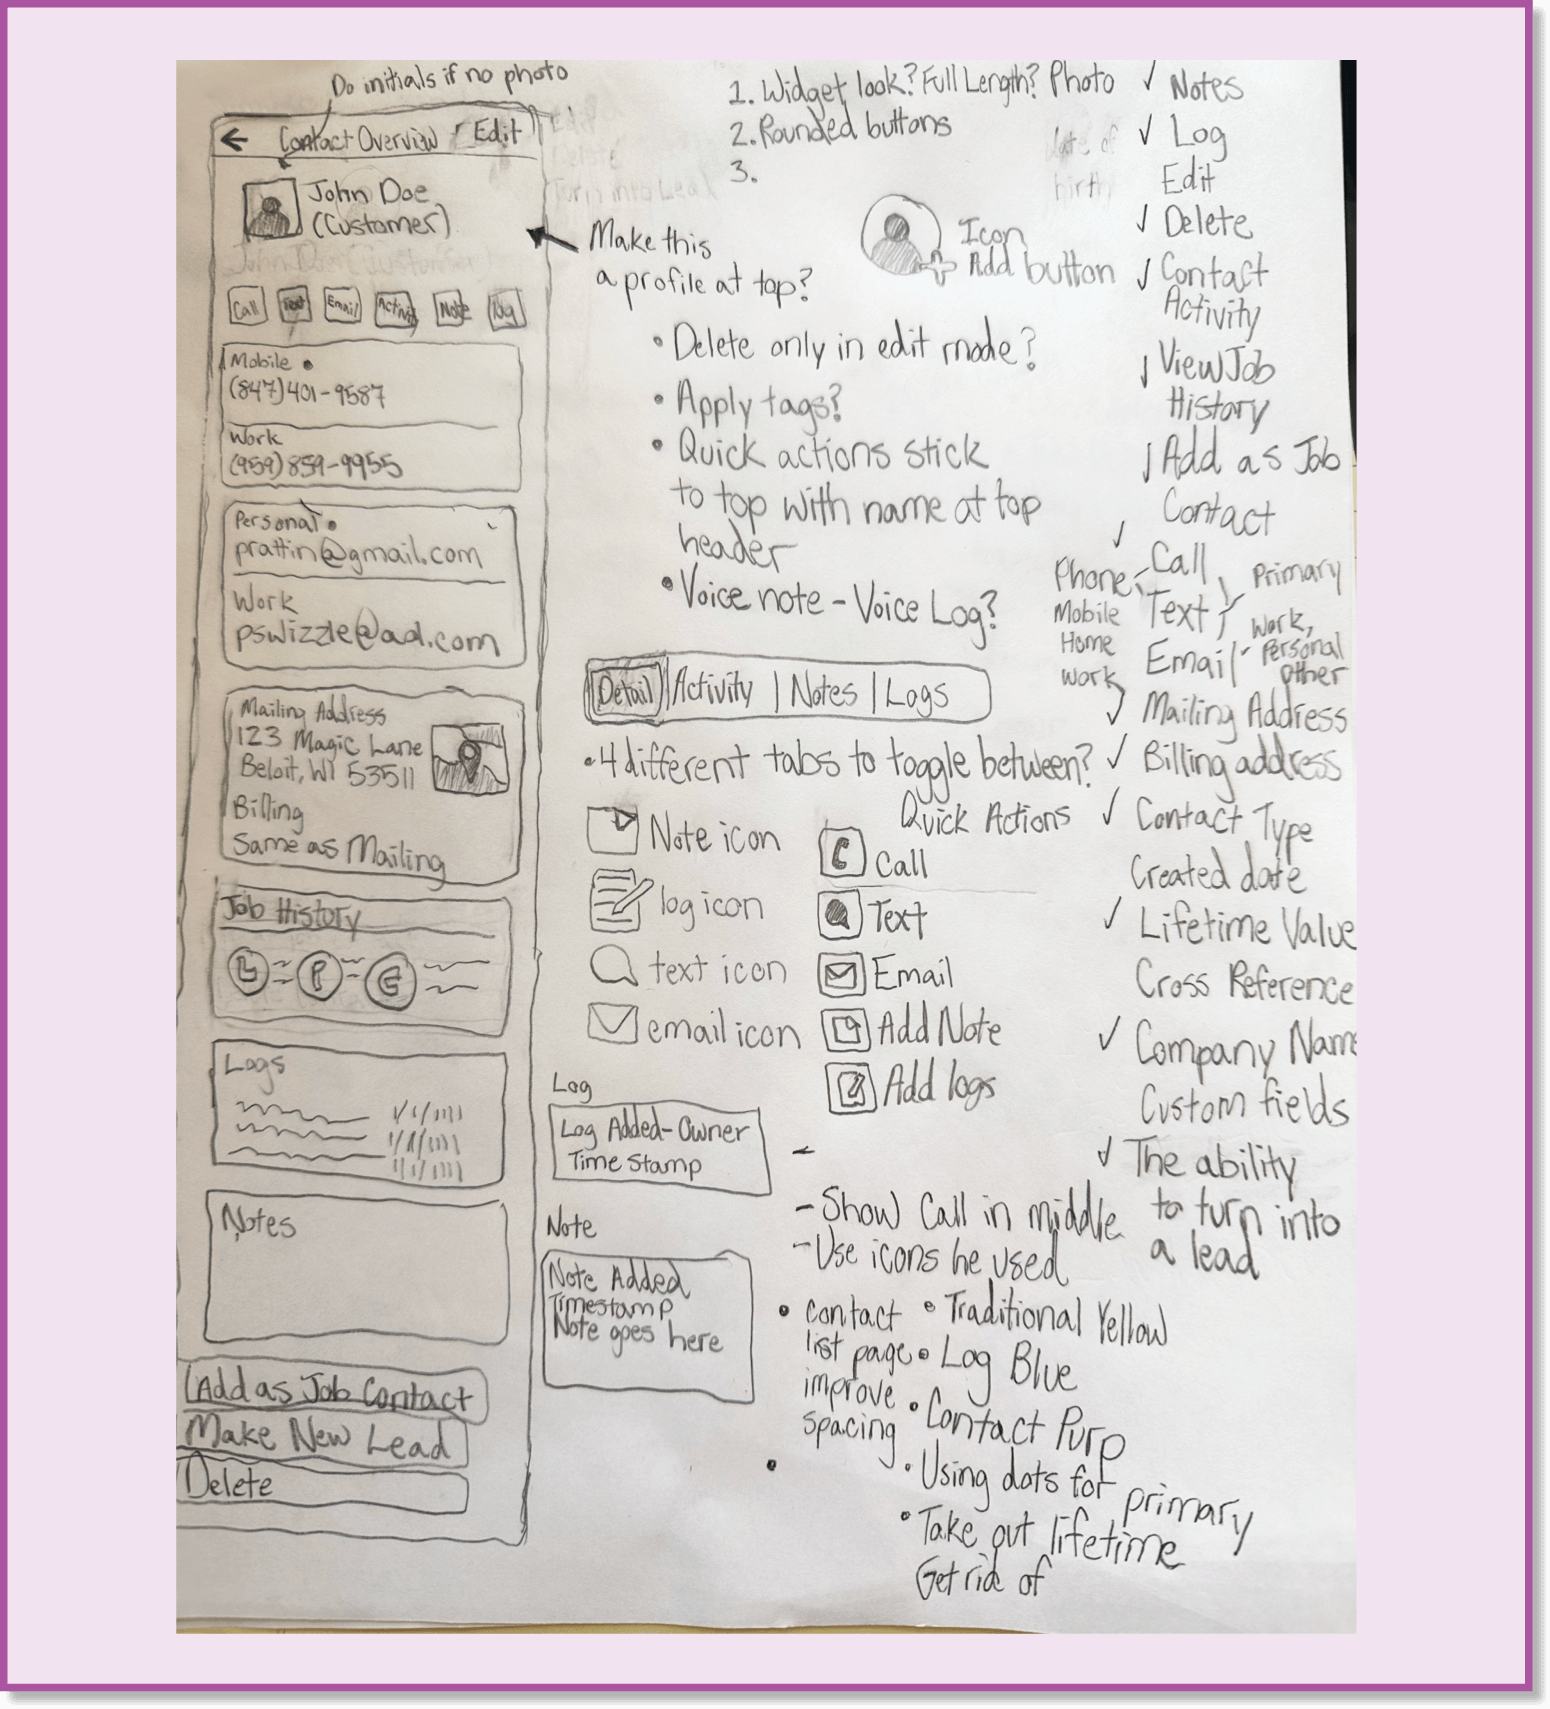 Do initials if no photo
← Contact Overview / Edit
John Doe
(Customer)
Call Text Email Activity Note Log
Mobile •
(847)401-9587
Work
(959)859-9955
Personal •
prattin@gmail.com
Work
pswizzle@aol.com
Mailing Address
123 Magic Lane
Beloit, WI 53511
Billing
Same as Mailing
Job History
L P E
Logs
Notes
Add as Job Contact
Make New Lead
Delete
1. Widget look? Full Length? Photo
2. Rounded buttons
3.
date of
birth
Edit
Delete
Turn into Lead
Make this
a profile at top?
Icon
Add button
• Delete only in edit mode?
• Apply tags?
• Quick actions stick
to top with name at top
header
• Voice note - Voice Log?
Detail | Activity | Notes | Logs
• 4 different tabs to toggle between?
Note icon
log icon
text icon
email icon
Quick Actions
Call
Text
Email
Add Note
Add logs
Log
Log Added - Owner
Time Stamp
Note
Note Added
Timestamp
Note goes here
-
- Show Call in middle
- Use icons he used
• contact
list page
improve
spacing
•
• Traditional Yellow
• Log Blue
• Contact Purp
• Using dots for primary
• Take out lifetime
Get rid of
✓ Notes
✓ Log
Edit
✓ Delete
✓ Contact
Activity
✓ View Job
History
✓ Add as Job
Contact
✓
Phone - Call
Mobile
Home
Work
Text
Primary
Email - Work,
Personal
Other
✓ Mailing Address
✓ Billing address
✓ Contact Type
Created date
✓ Lifetime Value
Cross Reference
✓ Company Name
Custom fields
✓ The ability
to turn into
a lead